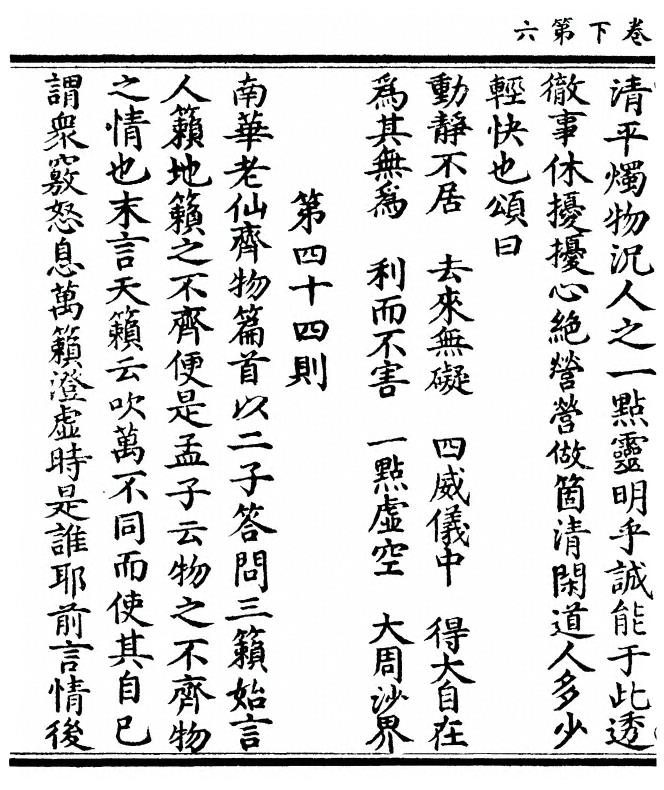 卷下第六
清平燭物況人之一點靈明乎誠能于此透
徹事休擾擾心絕營營做箇清閑道人多少
輕快也頌曰
動靜不居 去來無礙 四威儀中 得大自在
為其無為 利而不害 一點虛空 大周沙界
第四十四則
南華老仙齊物篇首以二子答問三籟始言
人籟地籟之不齊便是孟子云物之不齊物
之情也末言天籟云吹萬不同而使其自已
謂衆竅怒息萬籟澄虛時是誰耶前言情後